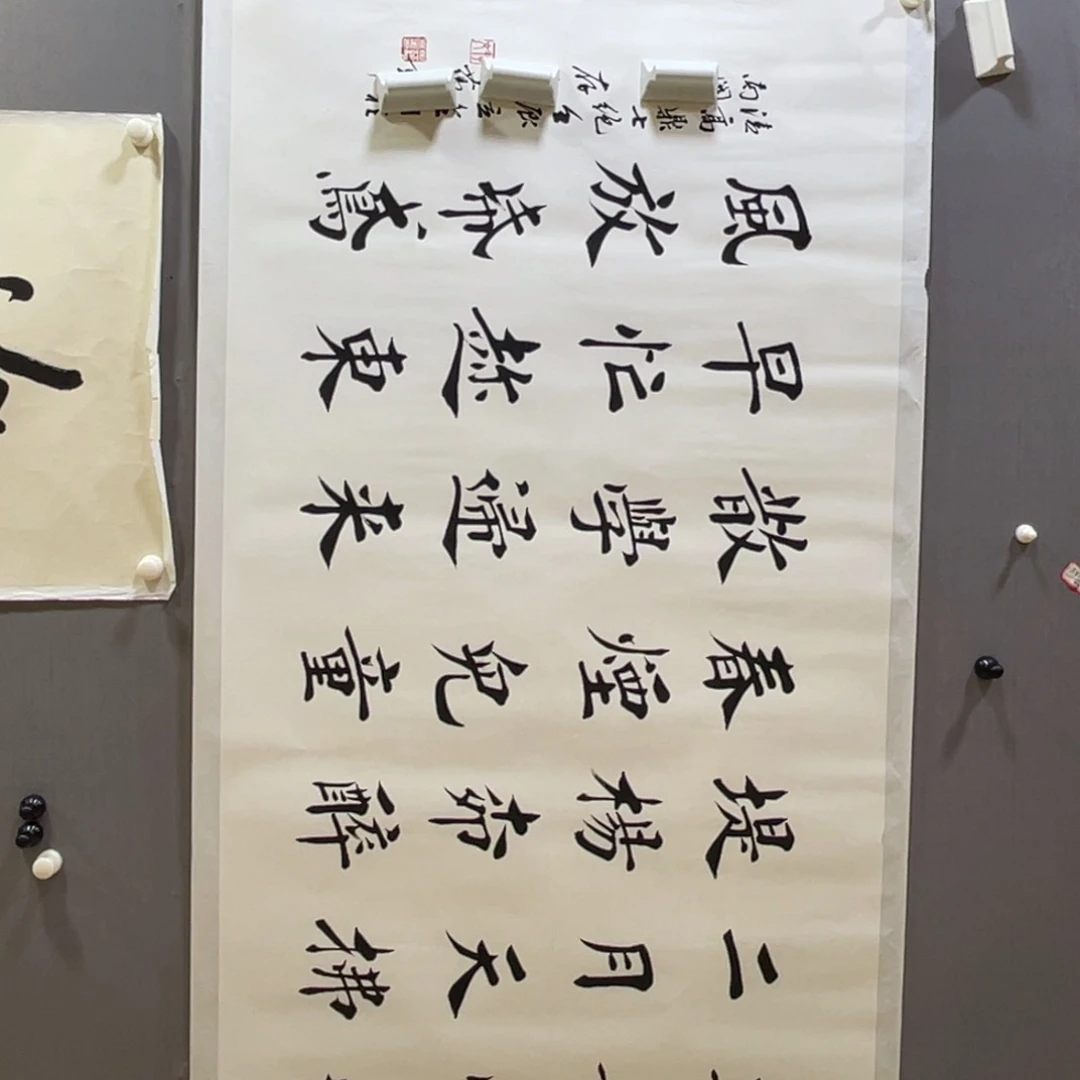 二月天拂
堤楊柳醉
春煙兒童
散學歸來
早忙趁東
風放紙鳶
清高鼎七絕